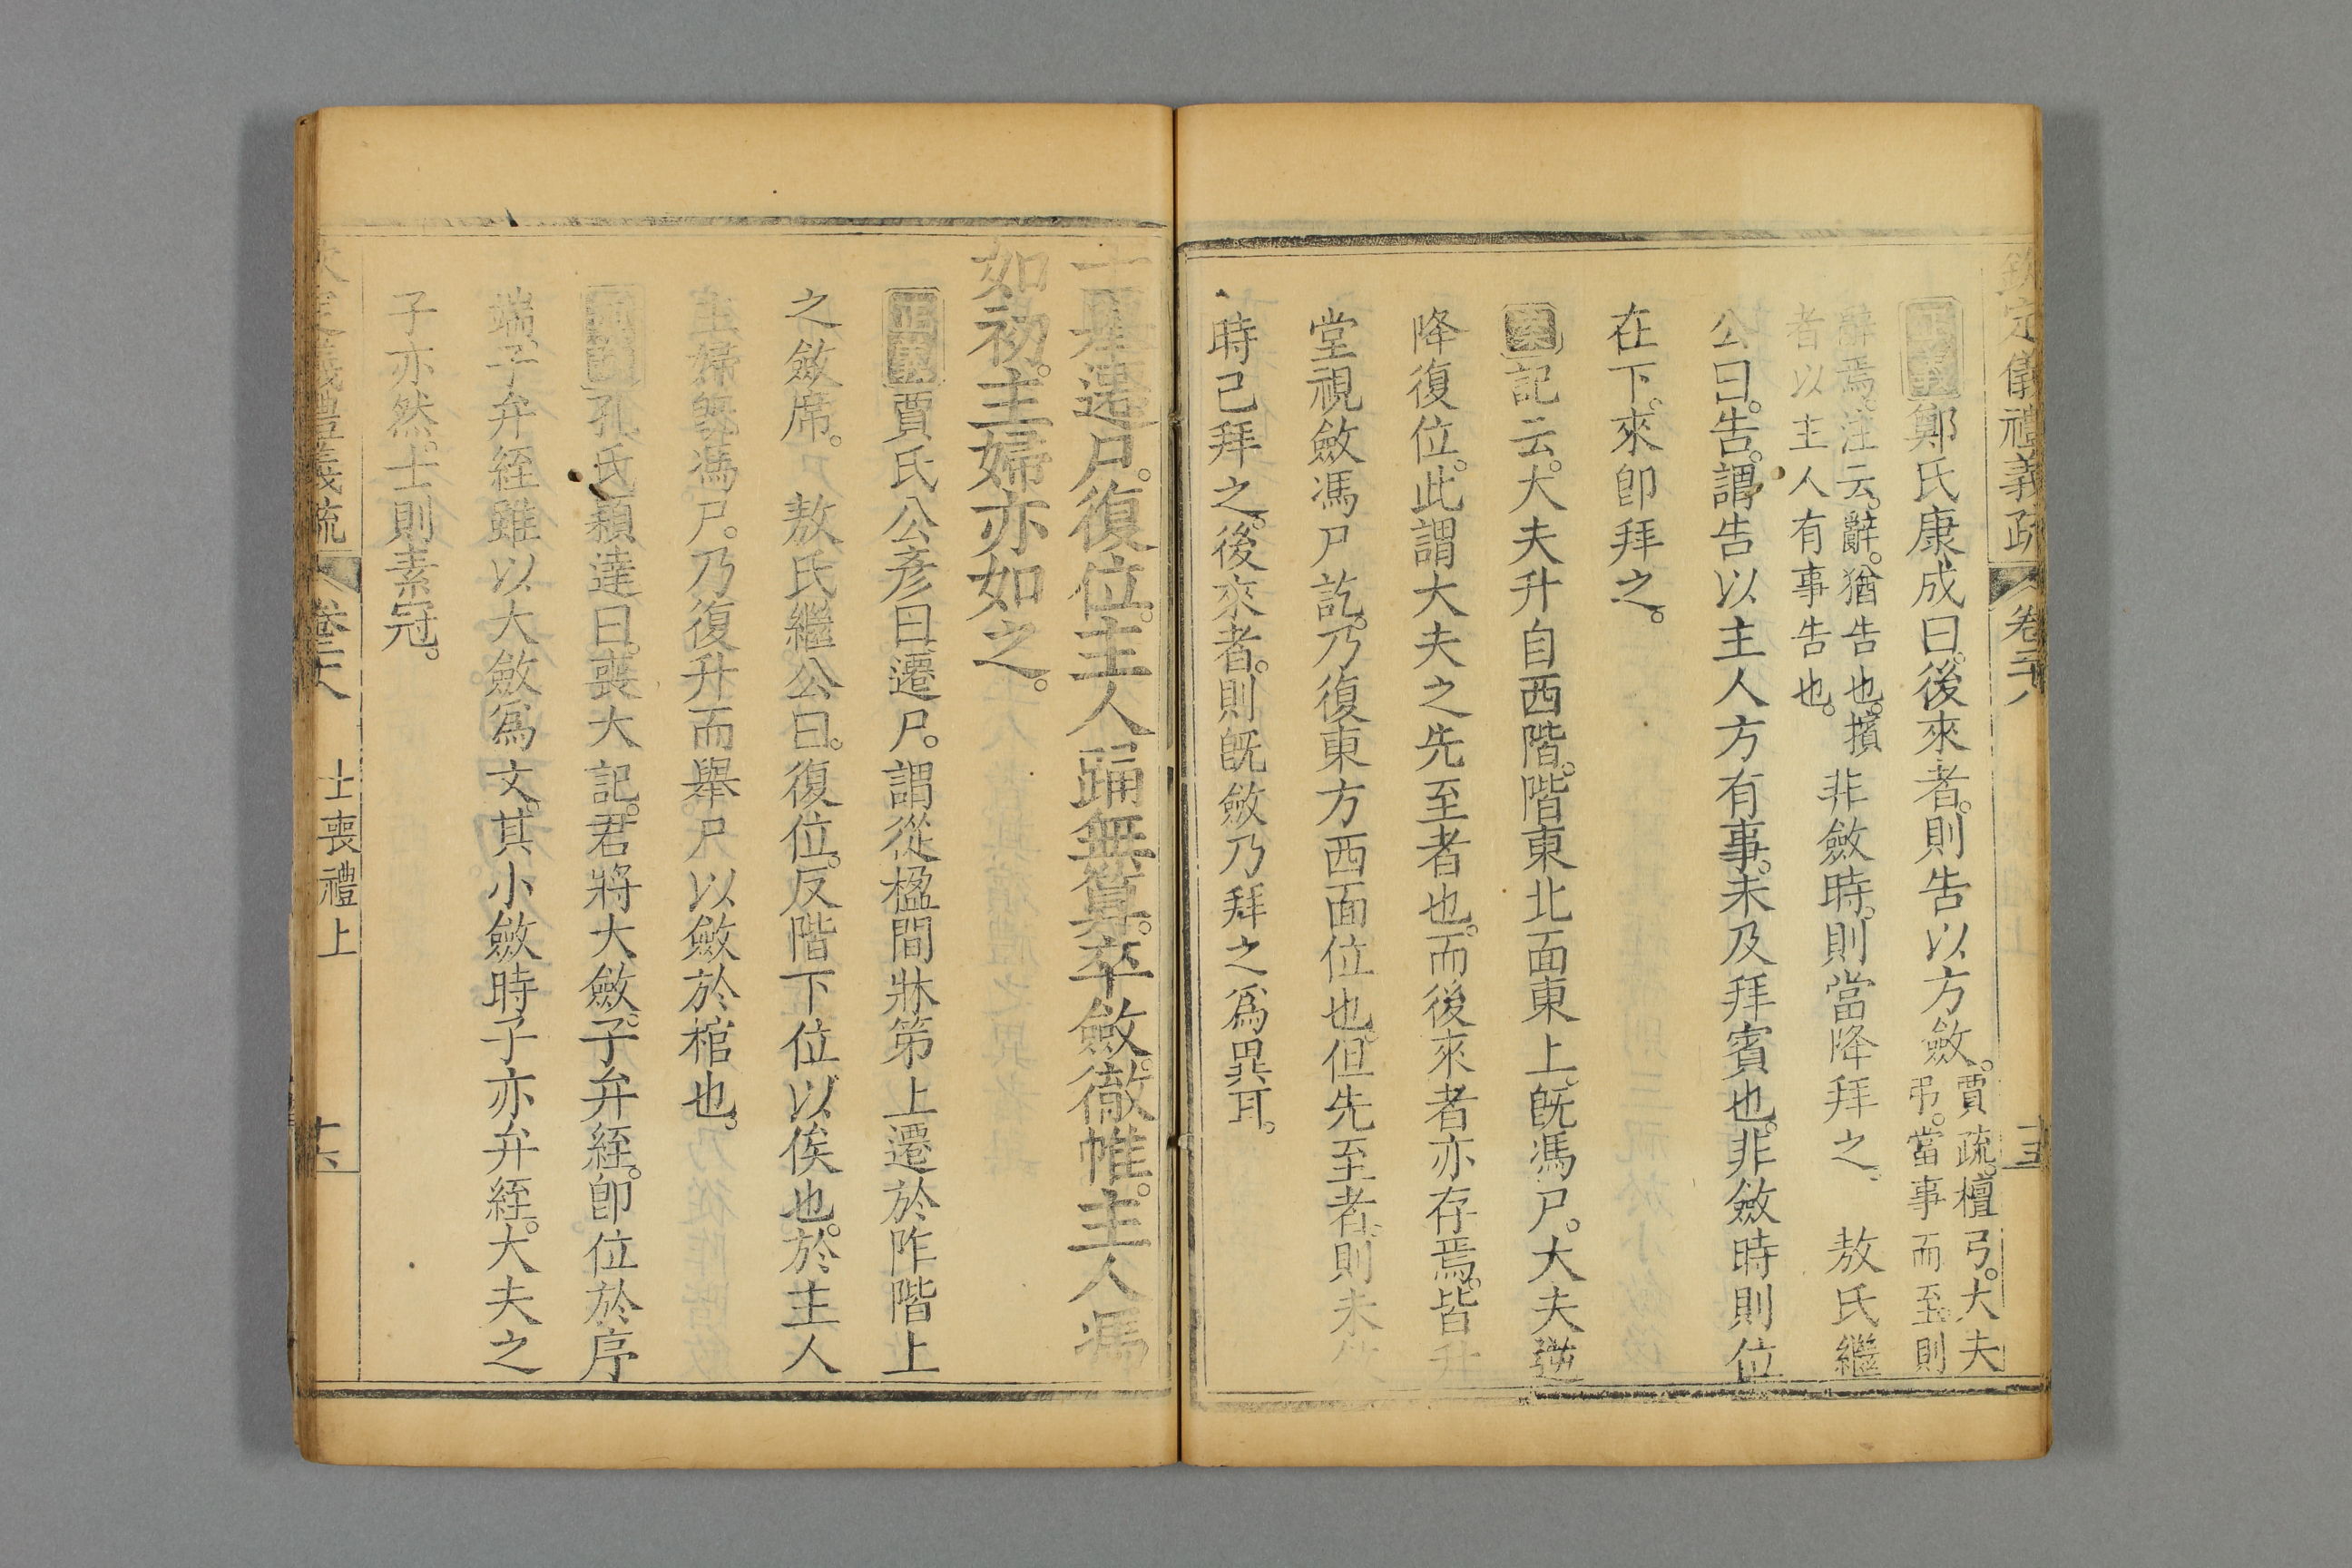 欽定儀禮義疏 卷二十八 十五
正義鄭氏康成曰。後來者。則告以方斂。賈疏。檀弓。大夫
弔。當事而至。則
辭焉。注云。辭。猶告也。擯
者以主人有事告也。
非斂時。則當降拜之。 敖氏繼
公曰。告。謂告以主人方有事。未及拜賓也。非斂時則位
在下。來卽拜之。
案記云。大夫升自西階。階東北面東上。旣馮尸。大夫逆
降復位。此謂大夫之先至者也。而後來者亦存焉。皆升
堂視斂馮尸訖。乃復東方西面位也。但先至者。則未斂
時已拜之。後來者。則旣斂乃拜之爲異耳。
士舉遷尸。復位。主人踊無算。卒斂。徹帷。主人馮
如初。主婦亦如之。
正義賈氏公彥曰。遷尸。謂從楹間牀第上遷於阼階上
之斂席。 敖氏繼公曰。復位。反階下位。以俟也。於主人
主婦旣馮尸。乃復升而舉尸以斂於棺也。
孔氏穎達曰。喪大記。君將大斂。子弁絰。卽位於序
端。子弁絰雖以大斂爲文。其小斂時子亦弁絰。大夫之
子亦然。士則素冠。
欽定儀禮義疏 卷二十八 士喪禮上 十六